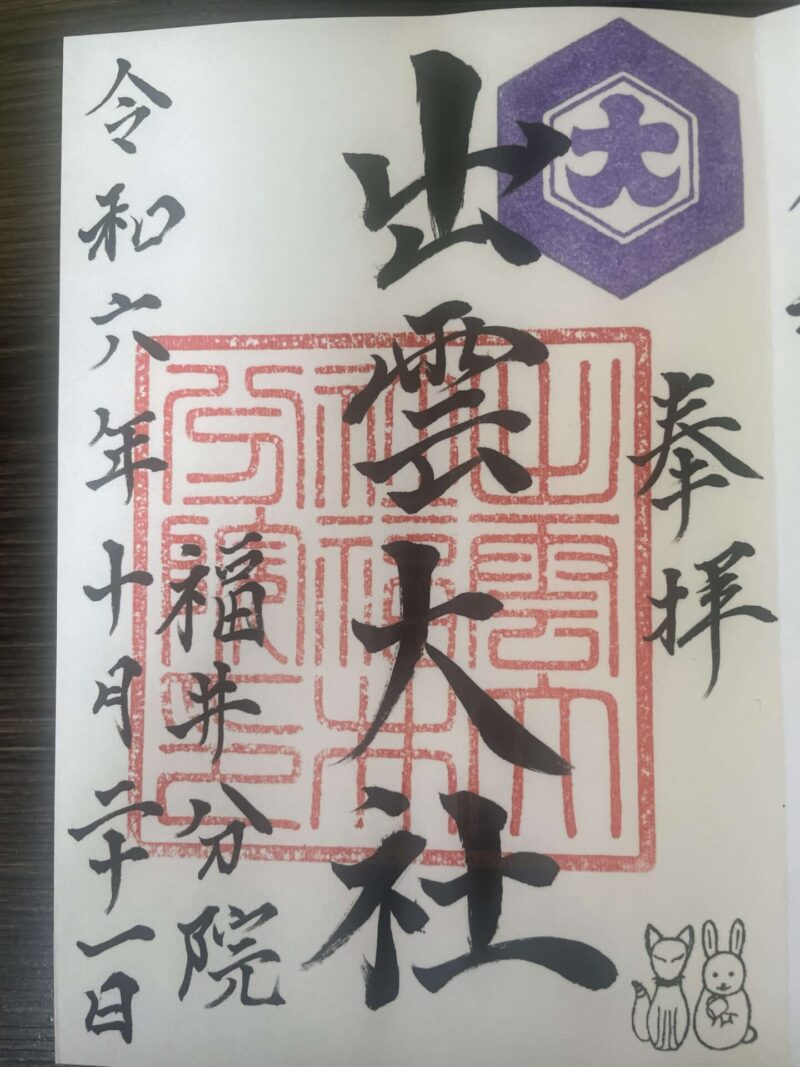 奉拝
大
出雲大社
出雲大社福井分院之印
福井分院
令和六年十月二十一日